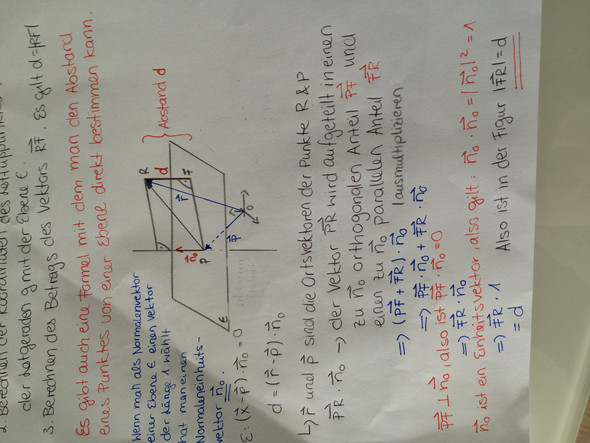 2. Berechnen der Koordinaten des Lotfußpunktes F
der Lotgeraden g mit der Ebene E.
3. Berechnen des Betrags des Vektors RF⃗. Es gilt d=|RF⃗|
Es gibt auch eine Formel mit dem man den Abstand
eines Punktes von einer Ebene direkt bestimmen kann.
Wenn man als Normalenvektor
einer Ebene E einen Vektor
der Länge 1 wählt
hat man einen
Normaleneinheits-
vektor n⃗₀.
R
d
F
} Abstand d
n⃗₀
r⃗
P
p⃗
O
E
E: (x⃗-p⃗)·n⃗₀=0
d = (r⃗-p⃗)·n⃗₀
↳ r⃗ und p⃗ sind die Ortsvektoren der Punkte R & P
PR⃗·n⃗₀ → der Vektor PR⃗ wird aufgeteilt in einen
zu n⃗₀ orthogonalen Anteil PF⃗ und
einen zu n⃗₀ parallelen Anteil FR⃗
⇒ (PF⃗+FR⃗)·n⃗₀ |ausmultiplizieren
⇒ PF⃗·n⃗₀ + FR⃗·n⃗₀
PF⃗ ⊥ n⃗₀, also ist PF⃗·n⃗₀=0
⇒ FR⃗·n⃗₀
n⃗₀ ist ein Einheitsvektor, also gilt: n⃗₀·n⃗₀=|n⃗₀|²=1
⇒ FR⃗·1 Also ist in der Figur |FR⃗|=d
= d